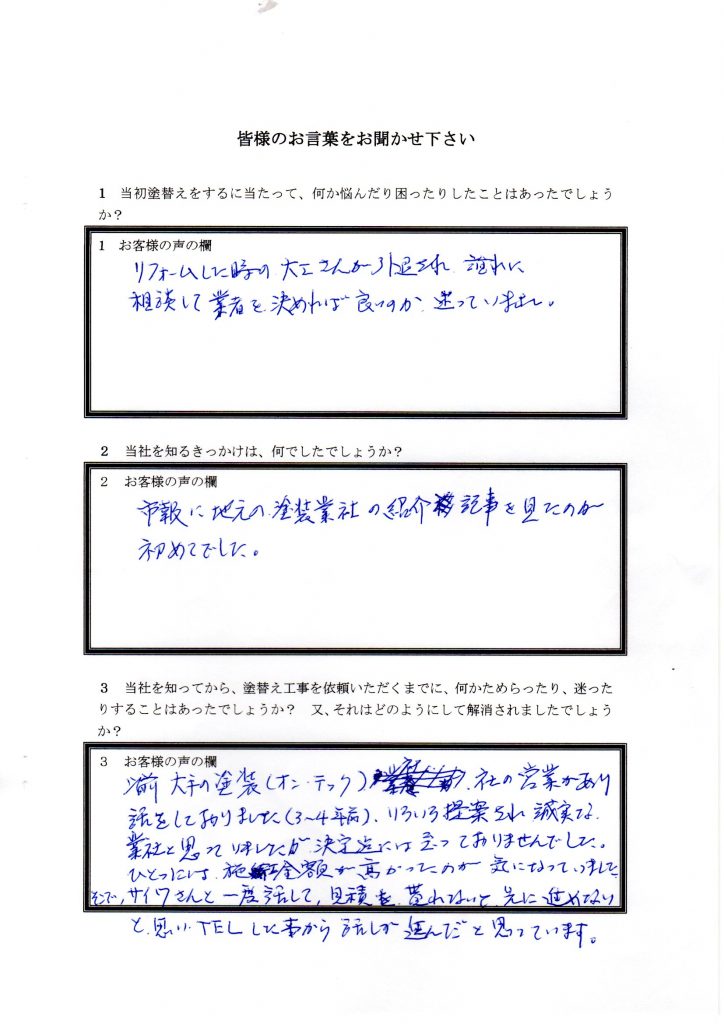 皆様のお言葉をお聞かせ下さい
1 当初塗替えをするに当たって、何か悩んだり困ったりしたことはあったでしょう
か？
1 お客様の声の欄
リフォームした時の 大工さんが引退され 誰れに
相談して 業者を 決めれば 良いのか、迷っていました。
2 当社を知るきっかけは、何でしたでしょうか？
2 お客様の声の欄
市報に 地元の 塗装業社の紹介 記事を見たのが
初めてでした。
3 当社を知ってから、塗替え工事を依頼いただくまでに、何かためらったり、迷った
りすることはあったでしょうか？ 又、それはどのようにして解消されましたでしょう
か？
3 お客様の声の欄
以前 大手の塗装(オン・テック) 社の営業があり
話をしておりました(3〜4年前)、いろいろ提案され 誠実な
業社と思っていましたが 決定迄には 至っておりませんでした。
ひとつには 施工金額が 高かったのが 気になっていました
そこで、サイワさんと 一度話して、見積を 貰わないと 先に進めない
と思い TELした事から 話しが 進んだと思っています。